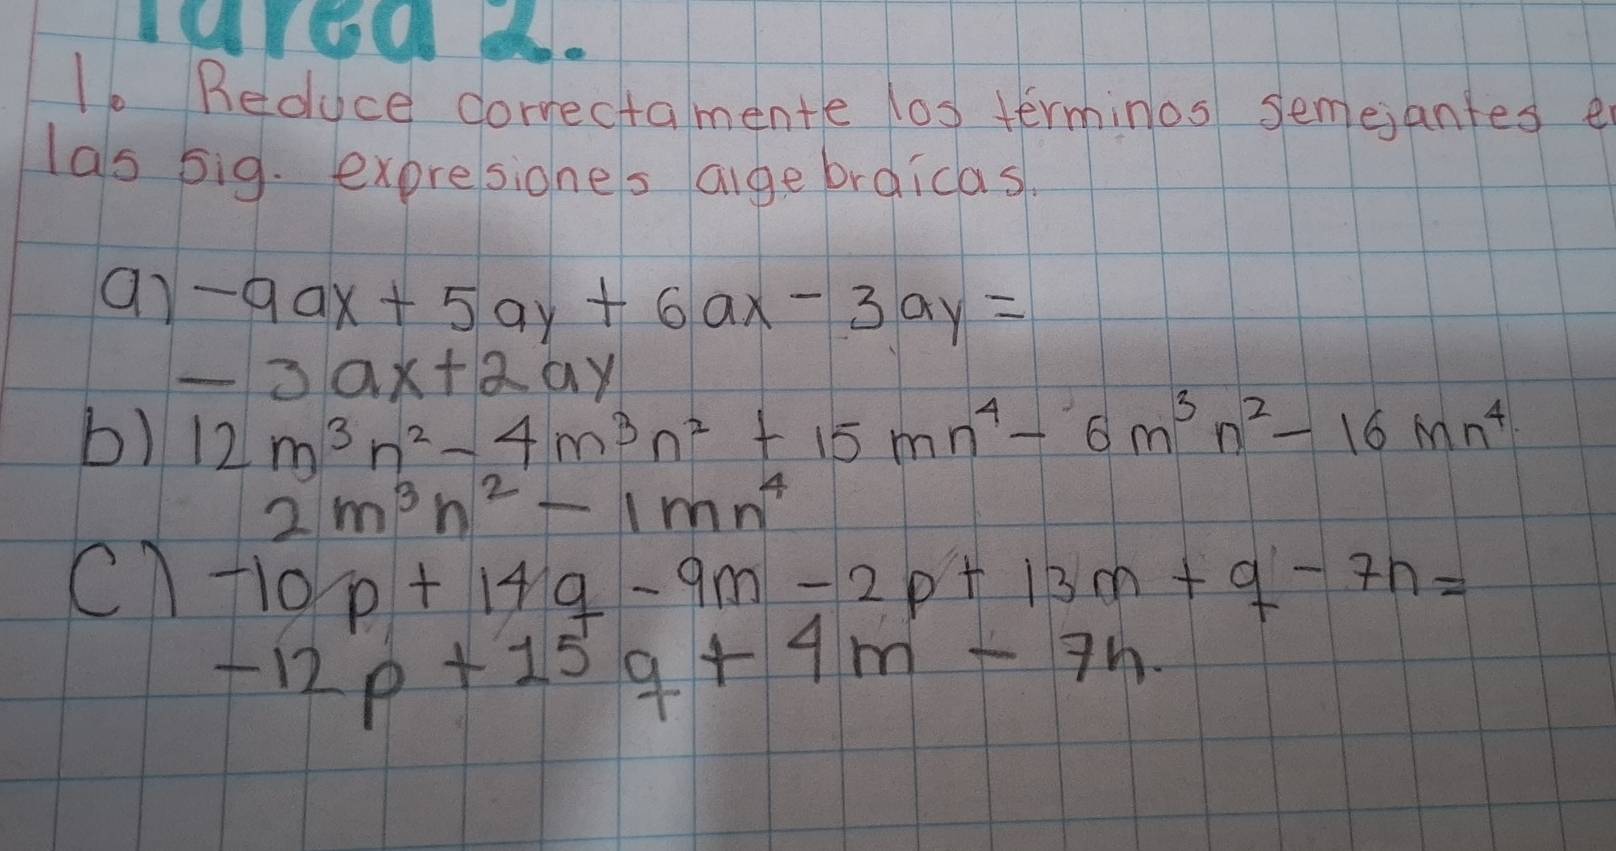 Tarea 2.
1. Reduce correctamente los términos semejantes en
las sig. expresiones algebraícas.
a) -9ax + 5ay + 6ax - 3ay =
- 3ax + 2ay
b) 12m³n² - 4m³n² + 15mn⁴ - 6m³n² - 16mn⁴.
2m³n² - 1mn⁴
C) -10p + 14q - 9m - 2p + 13m + q - 7n =
-12p + 15q + 4m - 7n.